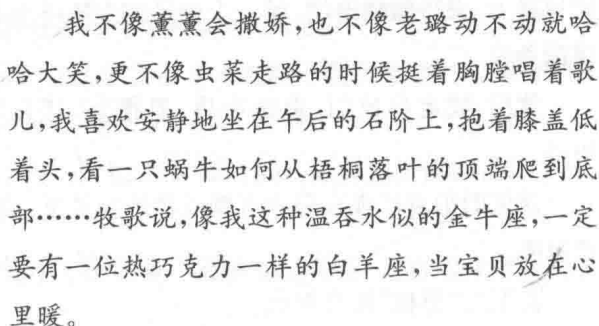 我不像薰薰会撒娇,也不像老璐动不动就哈
哈大笑,更不像虫菜走路的时候挺着胸膛唱着歌
儿,我喜欢安静地坐在午后的石阶上,抱着膝盖低
着头,看一只蜗牛如何从梧桐落叶的顶端爬到底
部……牧歌说,像我这种温吞水似的金牛座,一定
要有一位热巧克力一样的白羊座,当宝贝放在心
里暖。